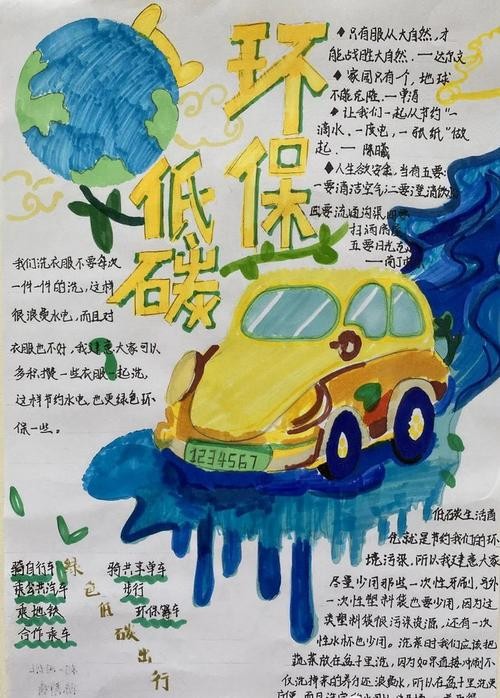 环保
低碳
♦只有服从大自然,才
能战胜大自然.一达尔文
♦家园只有个,地球
不能克隆.一
♦让我们一起从节约"一
滴水、一度电、一张纸"做
起.一 陈曦
♦人生欲安余,当有五要:
一要清洁空气;二要澄清饮
四要流通沟渠
扫洒房屋
五要日光充
一南丁
我们洗衣服不要每次
一件一件的洗,这样
很浪费水电,而且对
衣服也不好,我建意大家可以
多积攒一些衣服一起洗,
这样节约水电,也更绿色环
保一些。
1234567
绿色低碳出行
骑自行车
乘公共汽车
乘地铁
合作乘车
骑共享单车
步行
环保赛车
低碳生活酉
也就是节约我们的环
境污张,所以我建意大家
尽量少用那些一次性牙刷,另外
一次性塑料袋也要少用,因为过
类塑料袋很污染资源,还有一次
性水杯也少用。洗菜时我们应该把
蔬菜放在盆子里洗,因为如果直接冲刷不
仅洗掉菜的养分还浪费水,所以在盆子里先沉